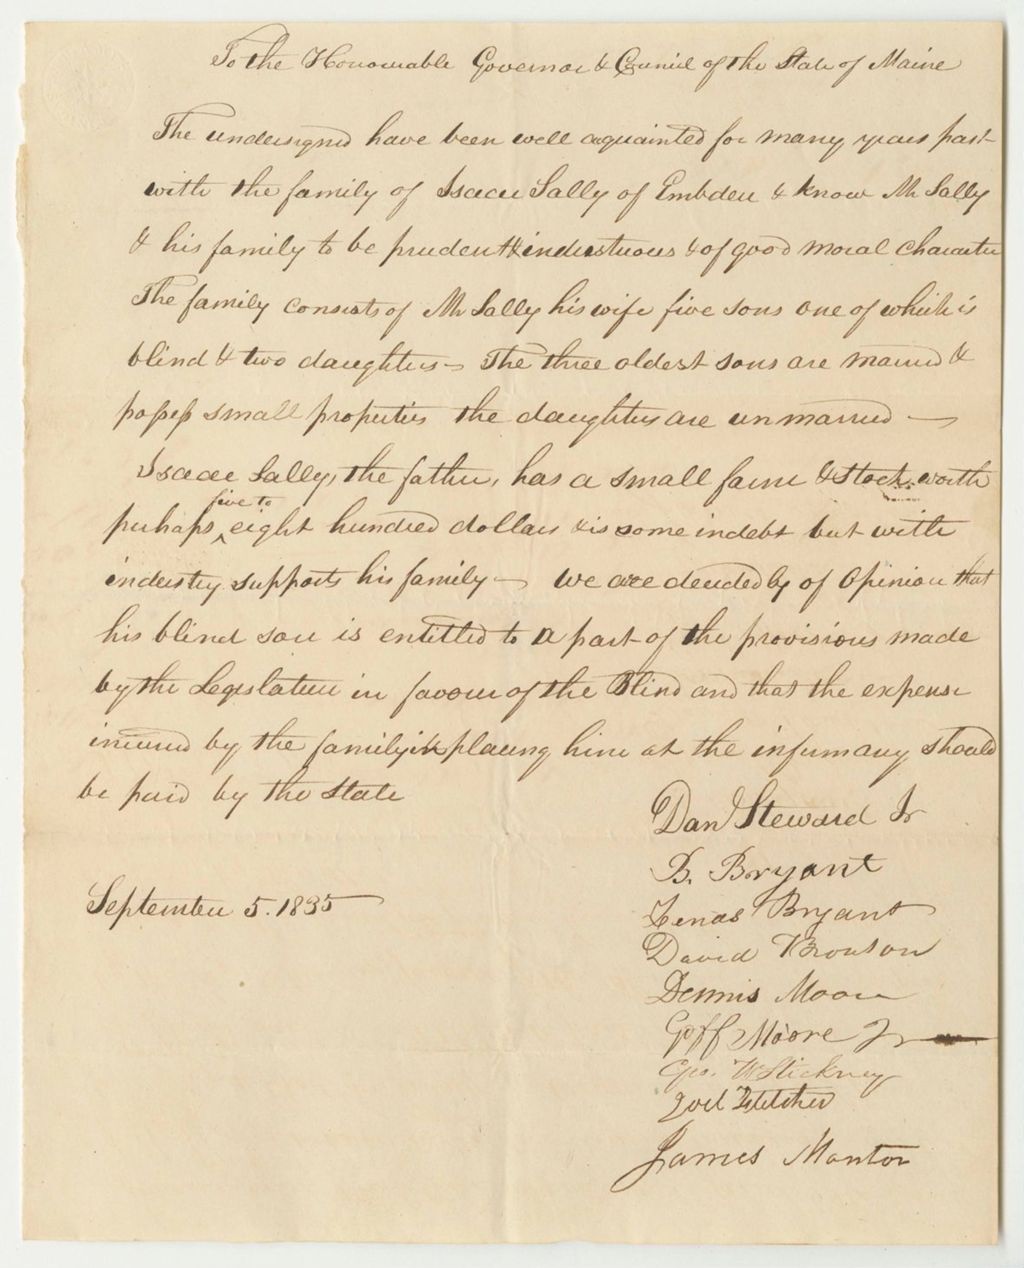 To the Honourable Governor & Council of the State of Maine
The undersigned have been well acquainted for many years past
with the family of Isaac Sally of Embden & know Mr Sally
& his family to be prudent & industruous & of good moral character
The family consists of Mr Sally his wife five sons one of which is
blind & two daughters – The three oldest sons are married &
possess small properties the daughters are unmarried –
Isaac Sally, the father, has a small farm & stock worth
five to
perhaps ‸ eight hundred dollars & is some indebt but with
industry supports his family – We are decidedly of Opinion that
his blind son is entitled to a part of the provisions made
by the Legislature in favour of the Blind and that the expense
incurred by the family in placing him at the infirmary should
be paid by the State
Dan Steward Jr
B. Bryant
September 5. 1835
Zenas Bryant
David Bronson
Dennis Moore
Goff Moore Jr
Geo. W Stickney
Joel Fletcher
James Manter